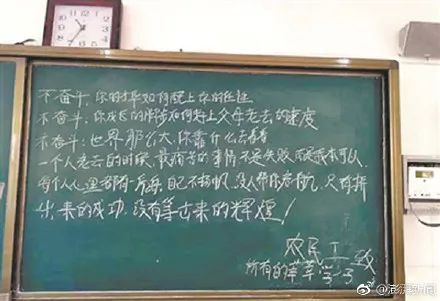 不奋斗,你的才华如何配上你的任性
不奋斗,你成长的脚步如何赶上父母老去的速度
不奋斗,世界那么大,你靠什么去看看
一个人老去的时候,最痛苦的事情不是失败,而是我本可以
每个人心里都有一片海,自己不扬帆,没人帮你启航,只有拼
出来的成功,没有等出来的辉煌!
农民工致
所有的莘莘学子
@澎湃新闻